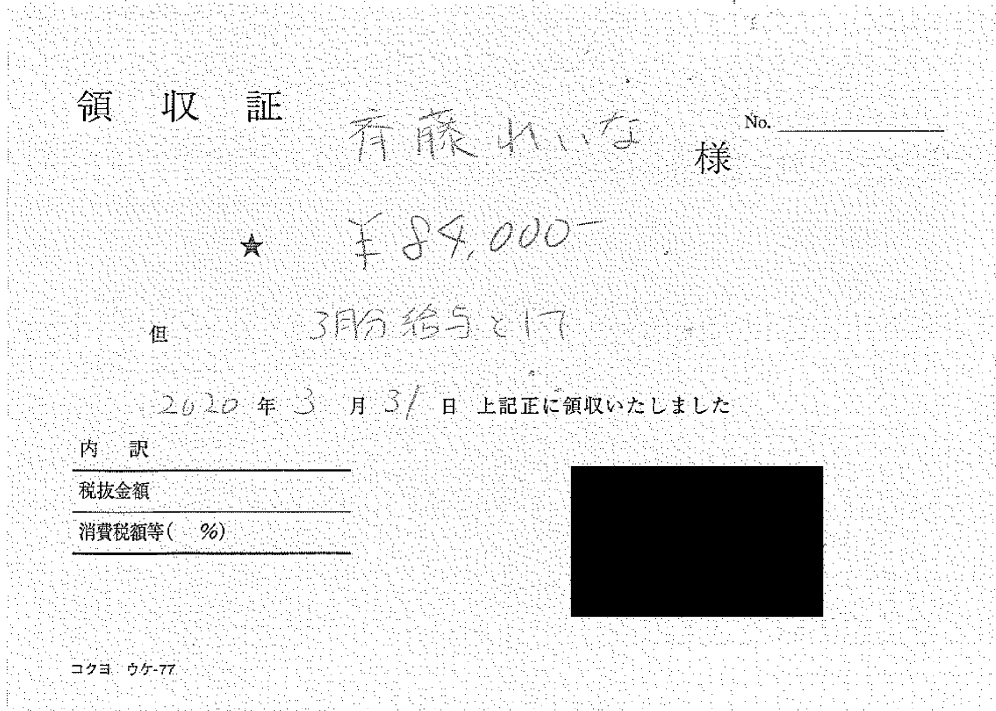 領 収 証 斉藤れいな 様 No.
★ ¥84,000-
但 3月分給与として
2020 年 3 月 31 日 上記正に領収いたしました
内 訳
税抜金額
消費税額等( %)
コクヨ ウケ-77